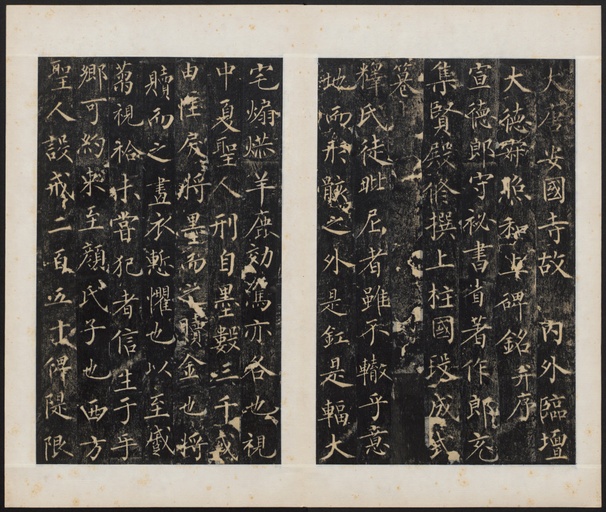 大唐安國寺故 內外臨壇
大德寂照和上碑銘并序
宣德郎守祕書省著作郎充
集賢殿修撰上柱國段成式
篹
釋氏徒毗尼者雖不轍乎意
地而形骸之外是釭是輻大
宅煽 羊鹿効駕亦各也視
中夏聖人刑自墨數三千或
由性戾將墨而之贖金也將
贖而之畫衣慙懼也以至
蒭視袷 當犯者信生于手
鄉可約束至顏氏子也西方
聖人設戒二百五十俾隄限